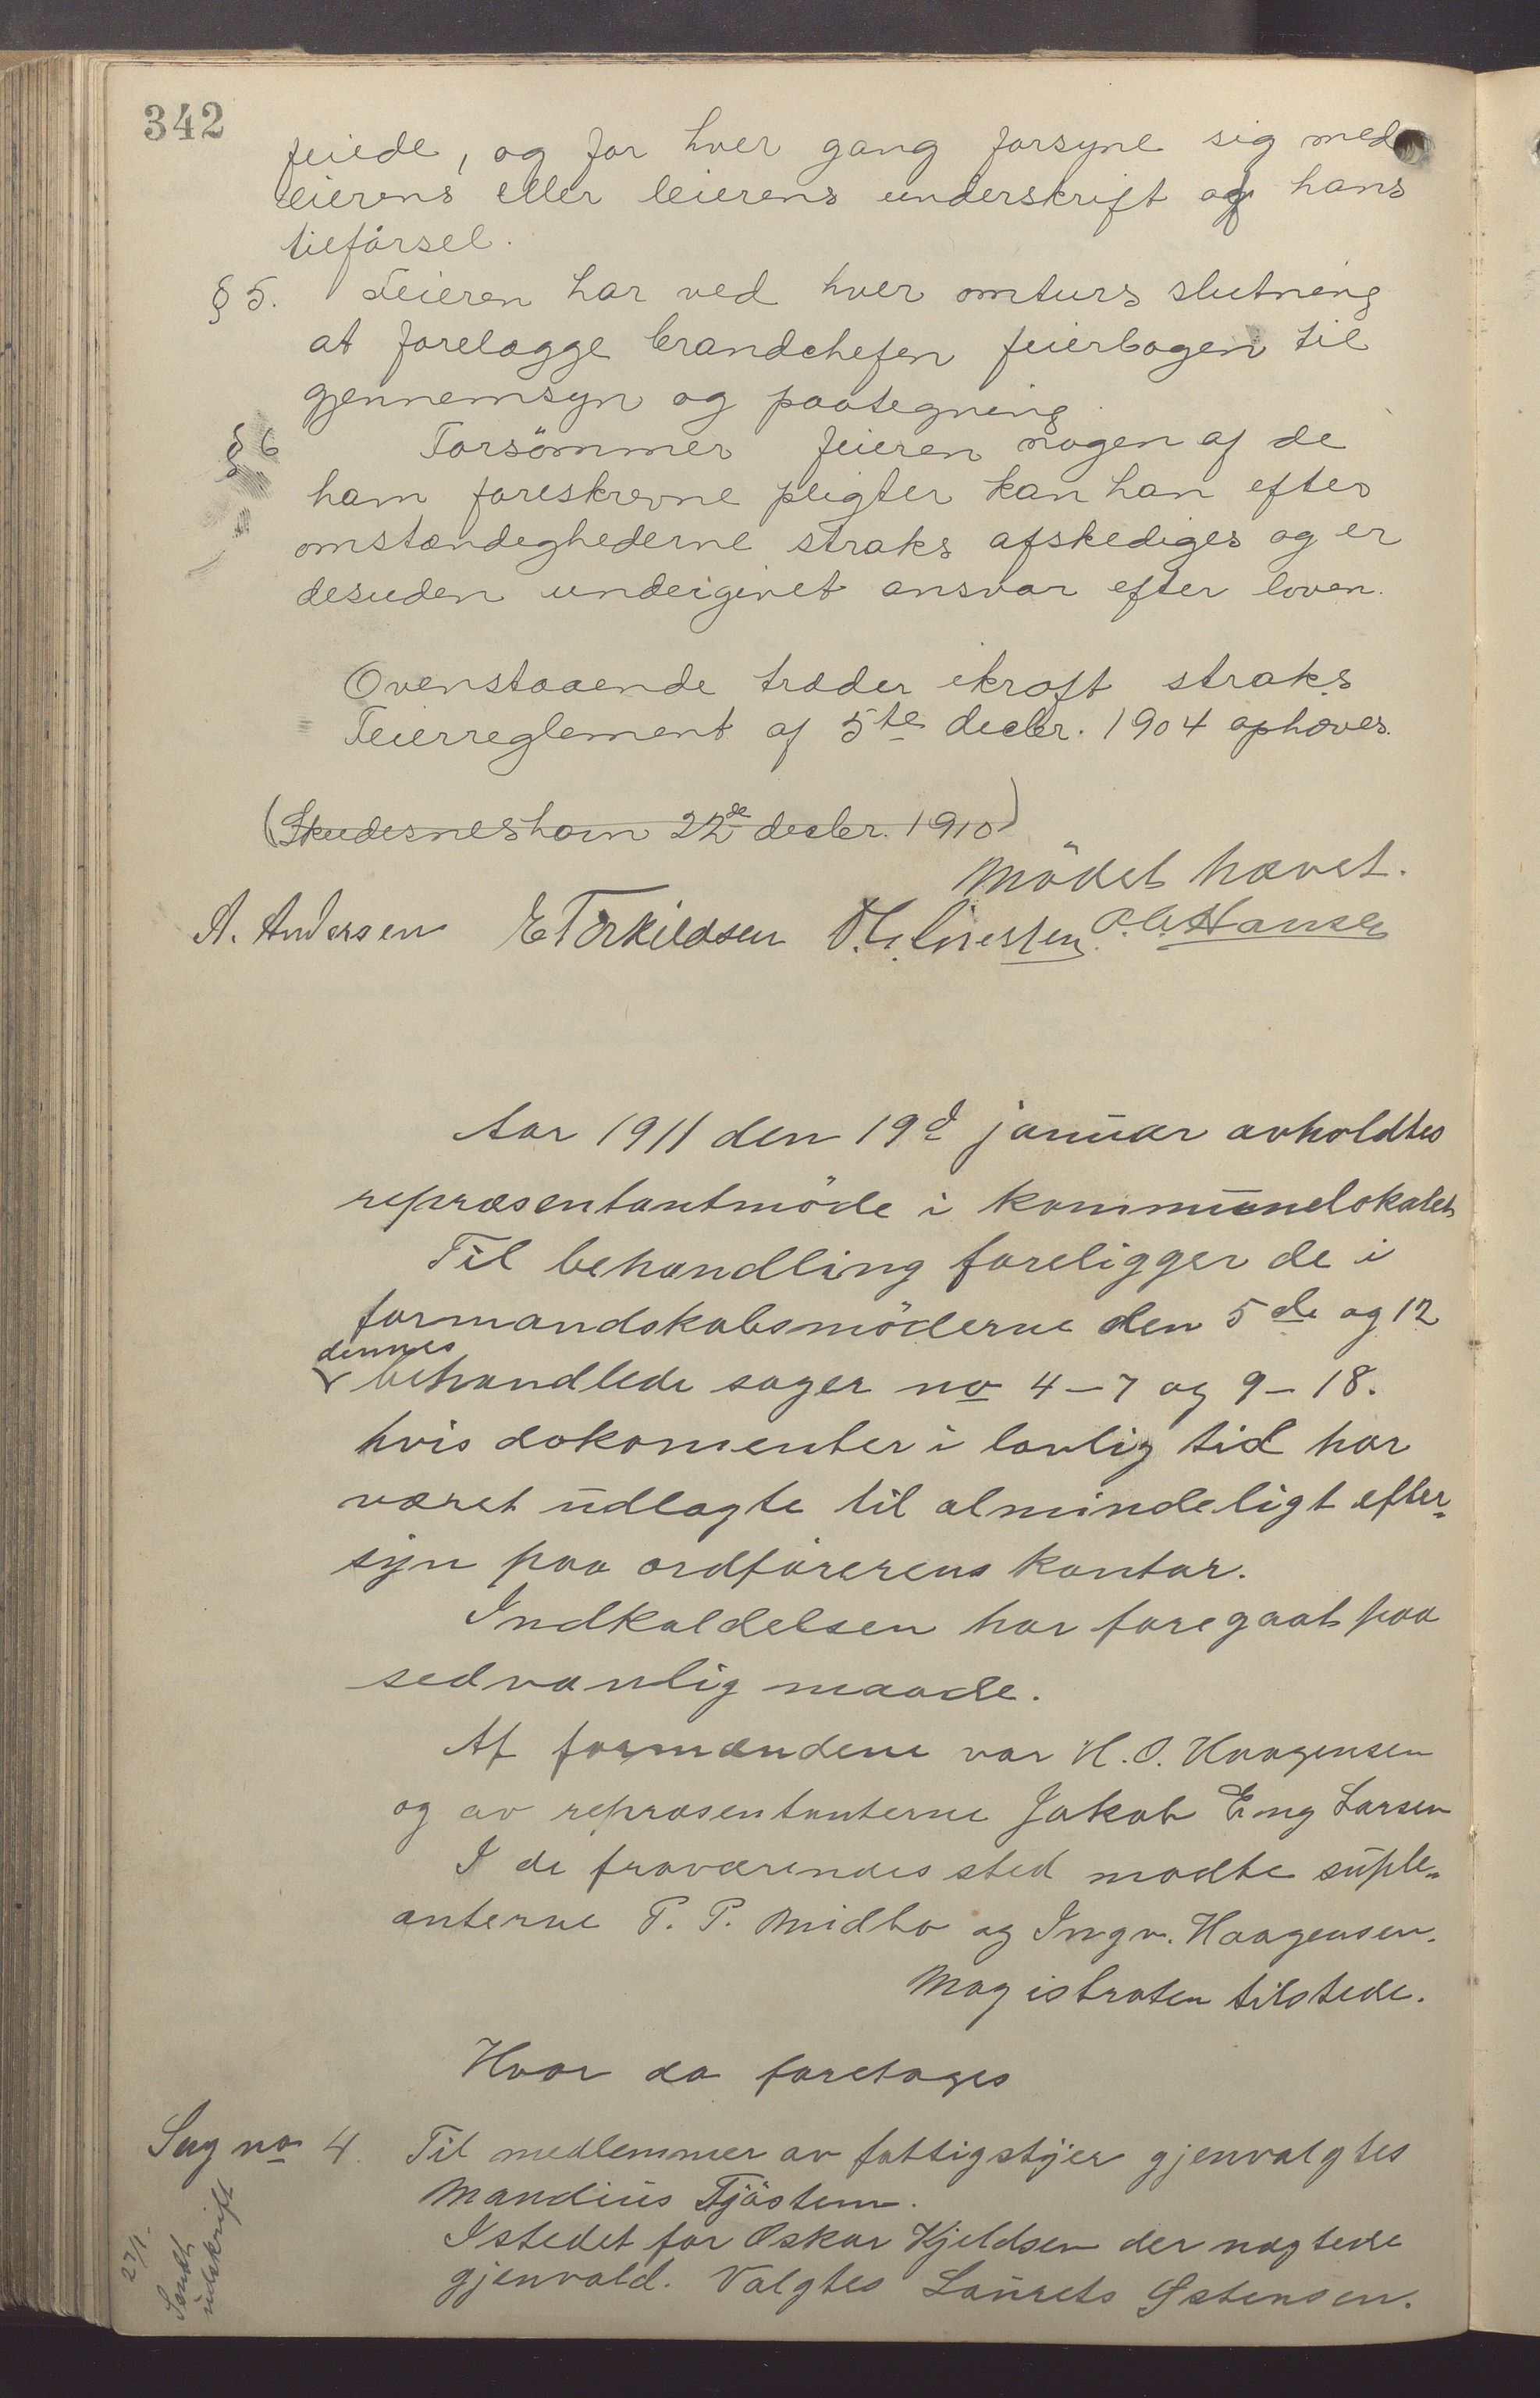 342
feiede, og for hver gang forsyne sig med
eierens eller leierens underskrift og hans
tilförsel.
§ 5. Feieren har ved hver omturs slutning
at forelægge brandchefen feierbogen til
gjennemsyn og paategning
§ 6 Forsömmer feieren nogen af de
ham foreskrevne pligter kan han efter
omstændeghederne straks afskediges og er
desuden undergivet ansvar efter loven.
Ovenstaaende træder ikraft straks
Feierreglement af 5te decbr. 1904 ophæves.
(Skudesneshavn 22de decbr. 1910)
Mödet hævet.
A. Andersen E Torkildsen Hansen
Aar 1911 den 19d januar avholdtes
repræsentantmöde i kommunelokalet
Til behandling foreligger de i
formandskabsmöderne den 5de og 12
dennes
behandlede sager no 4-7 og 9-18.
hvis dokomenter i lovlig tid har
været udlagte til almindeligt efter-
syn paa ordförerens kontor.
Indkaldelsen har foregaat paa
sedvanlig maade.
Af formændene var H. O. Haagensen
og av repræsentanterne Jakob Eng Larsen
I de fraværendes sted mødte suple-
anterne P. P. Midbø og Ingv. Haagensen.
Magistraten tilstede.
Hvor da foretages
Sag no 4. Til medlemmer av fattigstyer gjenvalgtes
Mandius Tjöstem.
Istedet for Oskar Kjeldsen der nægtede
gjenvald. Valgtes Laurets Østensen.
27/1.
Sendt
udskrift